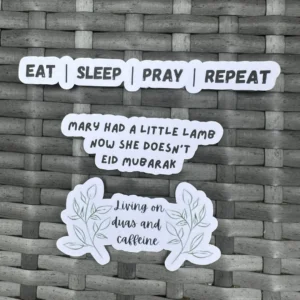 EAT | SLEEP | PRAY | REPEAT
MARY HAD A LITTLE LAMB
NOW SHE DOESN'T
EID MUBARAK
Living on
duas and
caffeine